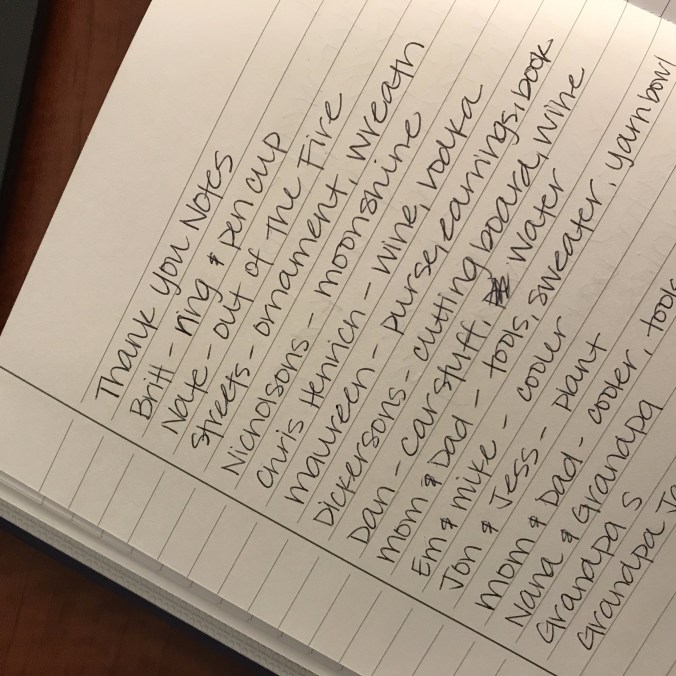 Thank you Notes
Britt - ring & pen cup
Nate - out of the Fire
Streets - ornament, wreath
Nicholsons - moonshine
Chris Henrich - wine, vodka
maureen - purse, earrings, book
Dickersons - cutting board, wine
Dan - car stuff, water
mom & Dad - tools, sweater, yarn bowl
Em & mike - cooler
Jon & Jess - plant
mom & Dad - cooler, tools
Nana & Grandpa
Grandpa S
Grandpa